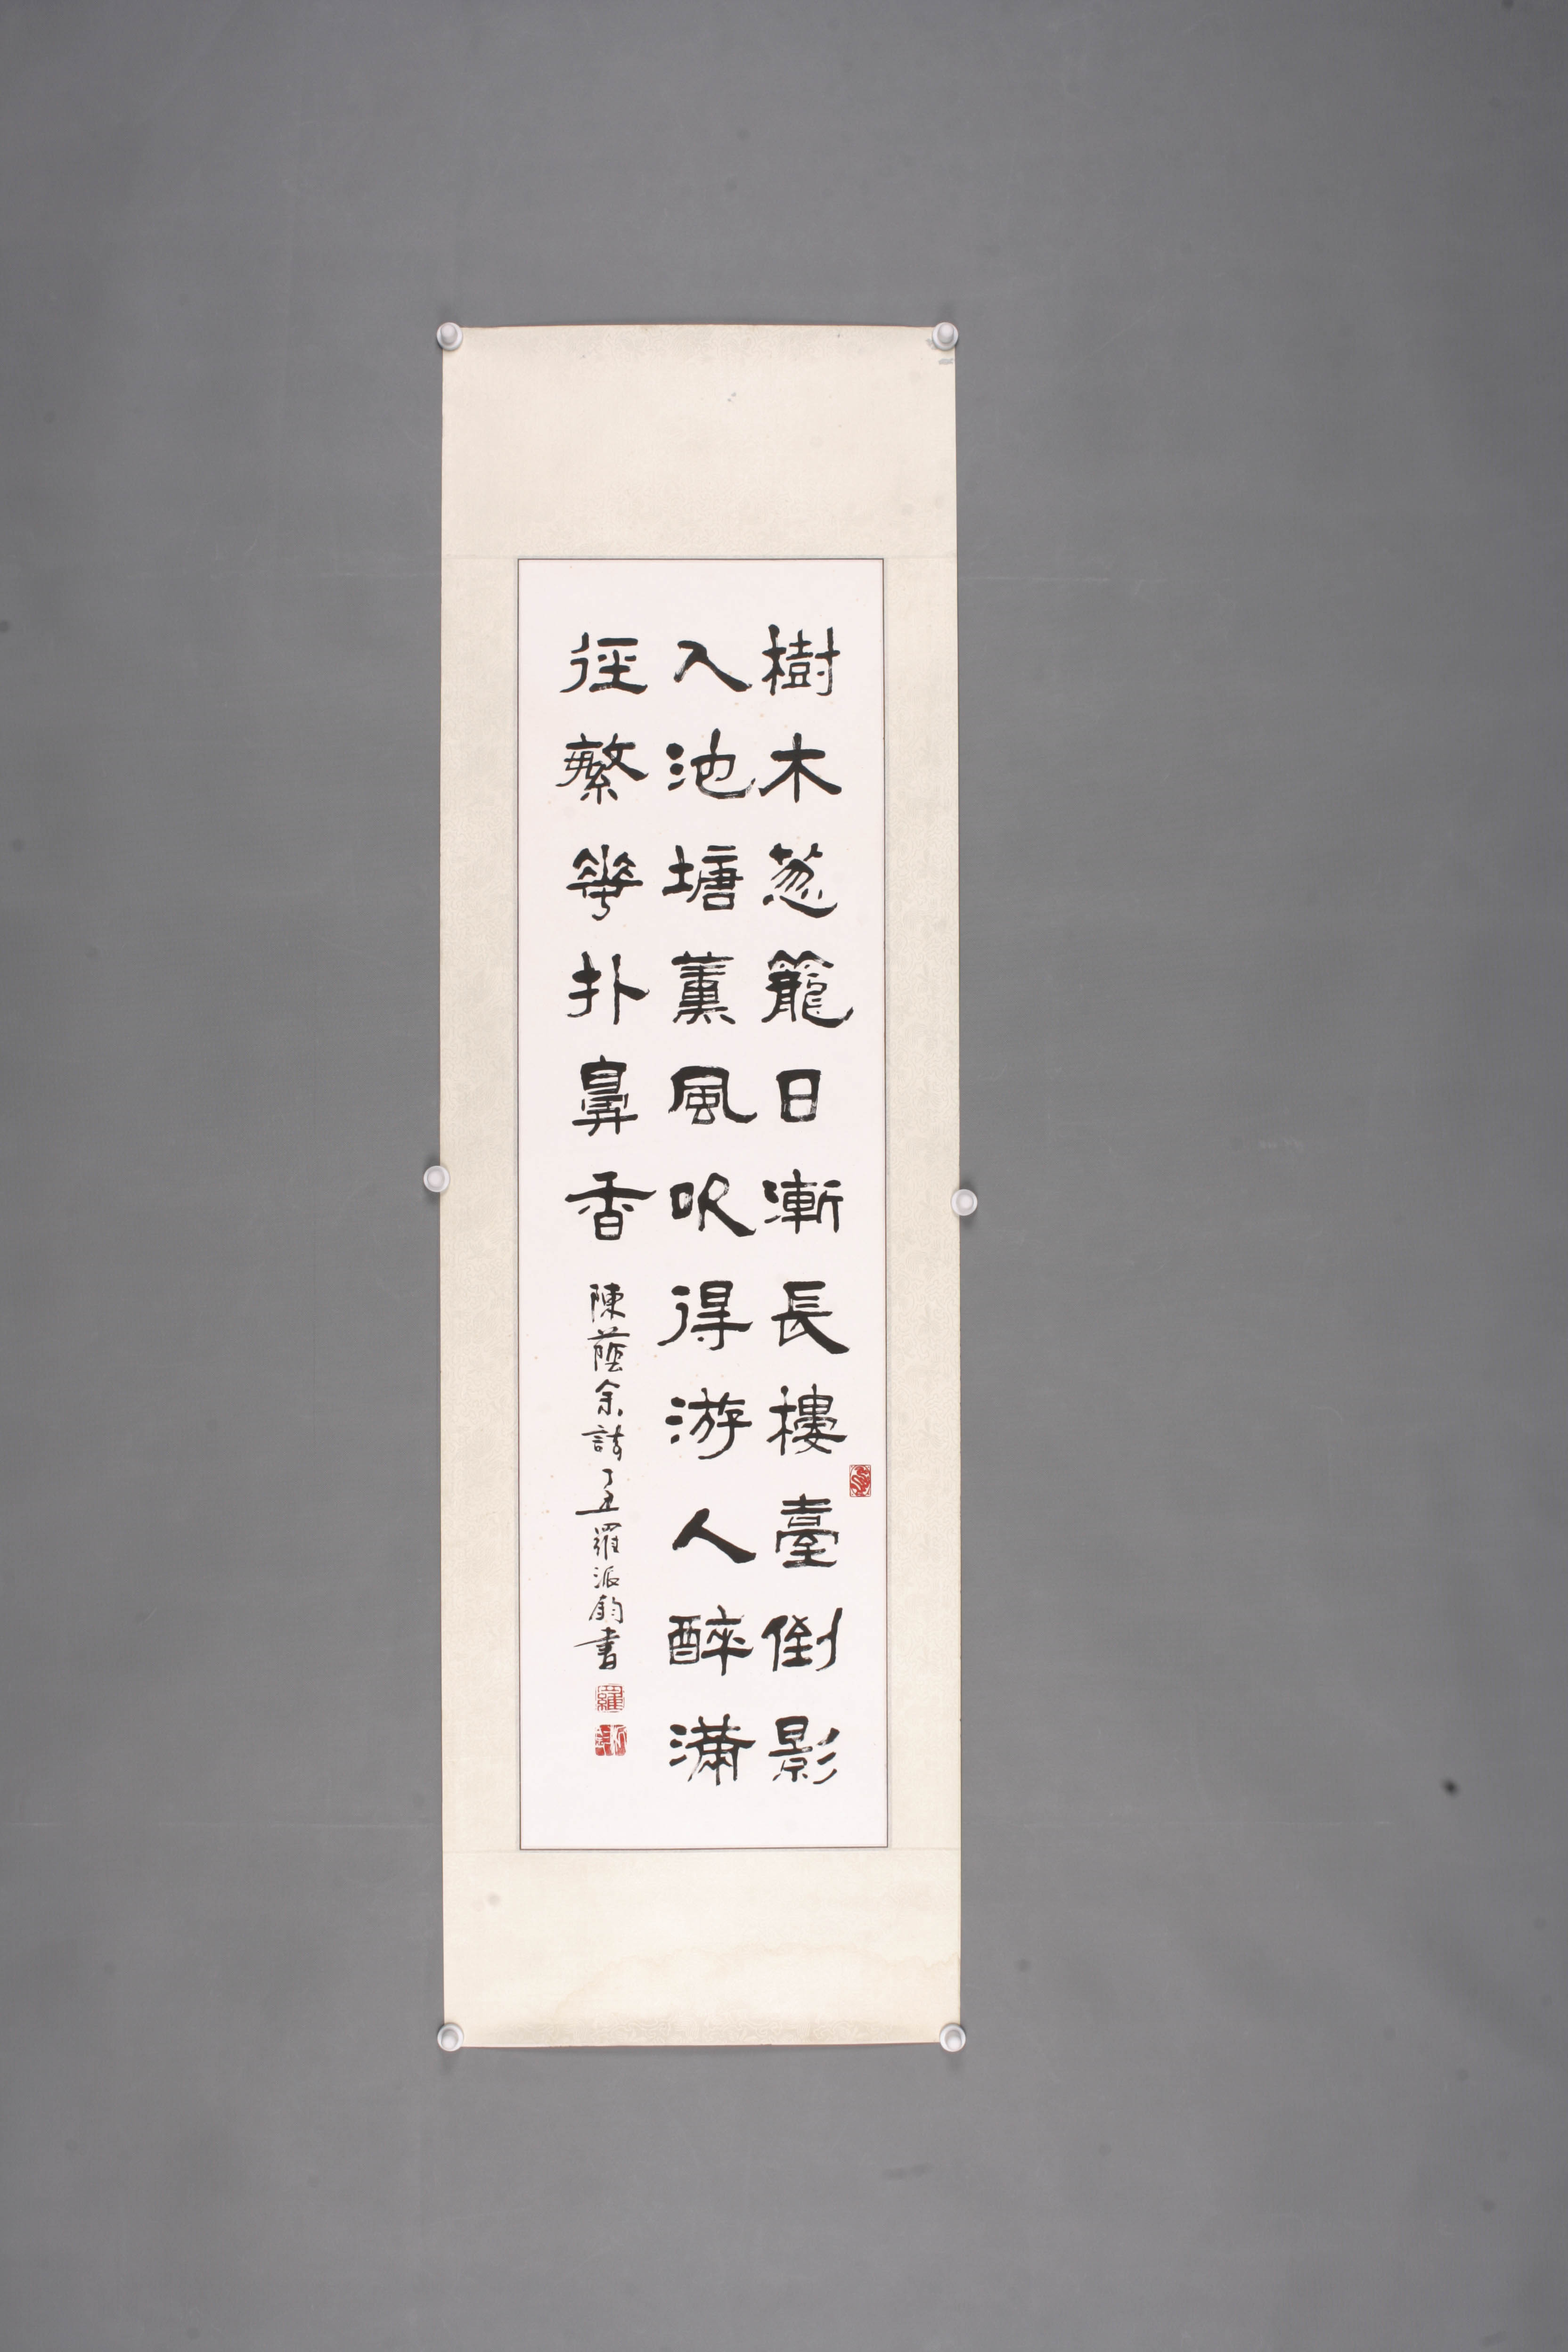 樹木葱籠日漸長樓臺倒影
入池塘薰風吹得游人醉滿
徑繁華扑鼻香
陳蔭余詩丁丑羅派鈞書